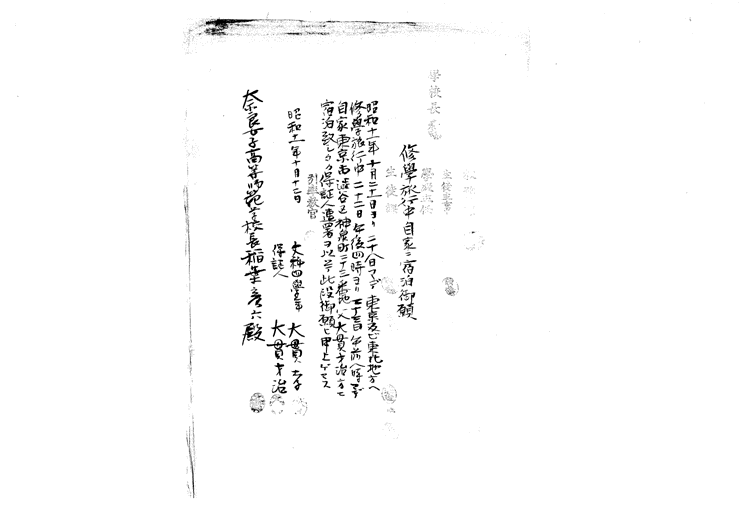 學校長
生徒主事
生徒課
修學旅行中自家ニ宿泊御願
昭和十一年十月二十一日ヨリ二十八日マデ東京及ビ東北地方ヘ
修學旅行中二十二日午後四時ヨリ二十三日午前八時マデ
自家東京市澁谷区神泉町二十二番地大貫才治方ニ
宿泊致シタク保証人連署ヲ以テ此段御願ヒ申上ゲマス
引率教官
昭和十一年十月十二日
文科四學年 大貫
保証人 大貫才治
奈良女子高等師範学校長稲葉彦六殿